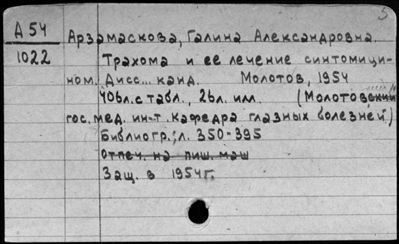 5
А 54
1022
Арзамаскова, Галина Александровна.
Трахома и ее лечение синтомици-
ном. Дисс... канд. Молотов, 1954
406л. с табл., 2бл. илл. (Молотовский
гос. мед. ин-т. Кафедра глазных болезней.)
Библиогр.: л. 350-395
Отпеч. на пиш. маш
Защ. в 1954г.